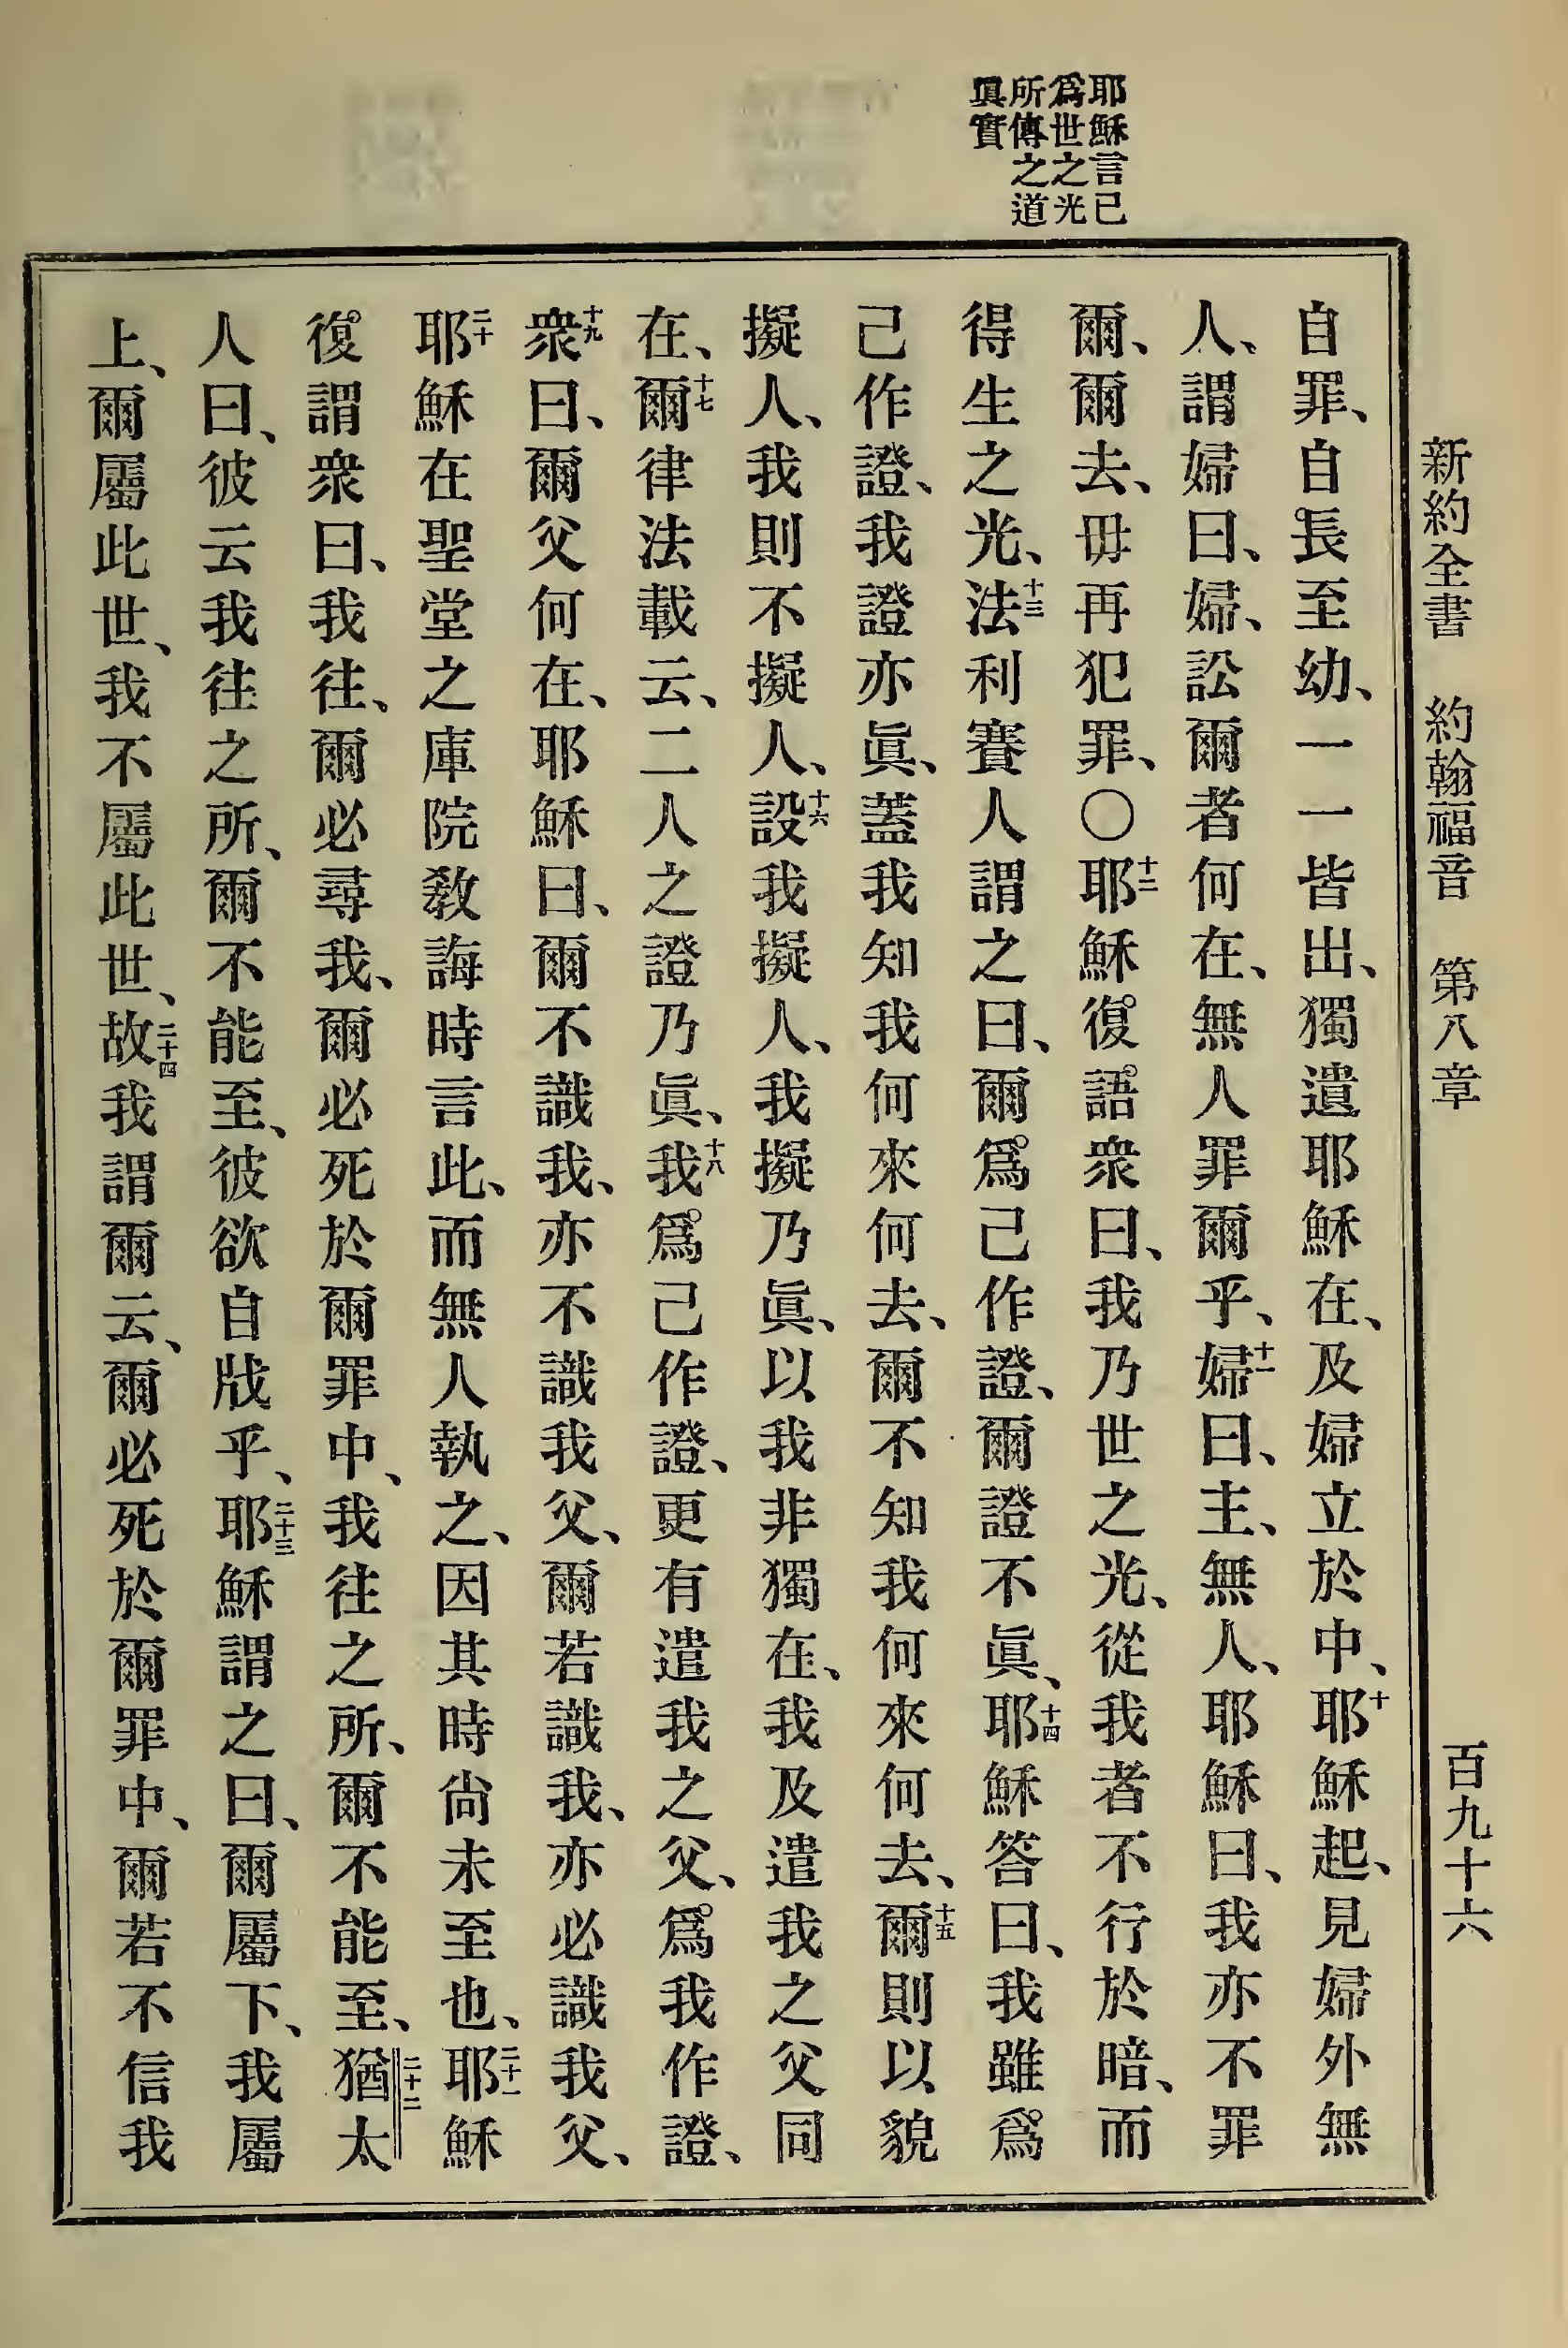 新約全書　約翰福音　第八章　百九十六
耶穌言己
爲世之光
所傳之道
眞實
自罪、自長至幼、一一皆出、獨遺耶穌在、及婦立於中、十耶穌起、見婦外無
人、謂婦曰、婦、訟爾者何在、無人罪爾乎、十一婦曰、主、無人、耶穌曰、我亦不罪
爾、爾去、毋再犯罪、〇十二耶穌復語衆曰、我乃世之光、從我者不行於暗、而
得生之光、十三法利賽人謂之曰、爾爲己作證、爾證不眞、十四耶穌答曰、我雖爲
己作證、我證亦眞、蓋我知我何來何去、爾不知我何來何去、十五爾則以貌
擬人、我則不擬人、十六設我擬人、我擬乃眞、以我非獨在、我及遣我之父同
在、十七爾律法載云、二人之證乃眞、十八我爲己作證、更有遣我之父、爲我作證、
十九衆曰、爾父何在、耶穌曰、爾不識我、亦不識我父、爾若識我、亦必識我父、
二十耶穌在聖堂之庫院敎誨時言此、而無人執之、因其時尙未至也、二十一耶穌
復謂衆曰、我往、爾必尋我、爾必死於爾罪中、我往之所、爾不能至、二十二猶太
人曰、彼云我往之所、爾不能至、彼欲自戕乎、二十三耶穌謂之曰、爾屬下、我屬
上、爾屬此世、我不屬此世、二十四故我謂爾云、爾必死於爾罪中、爾若不信我